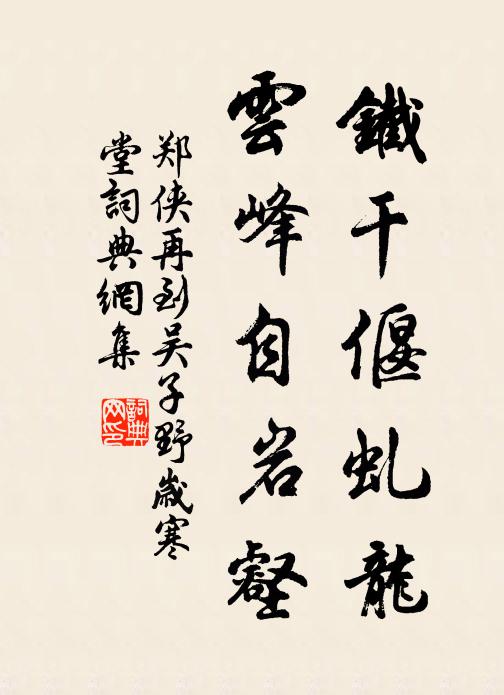 鐵干偃虬龍
雲峰自岩壑
郑侠再到吴子野歳寒
堂詞典網集
詞典
网印